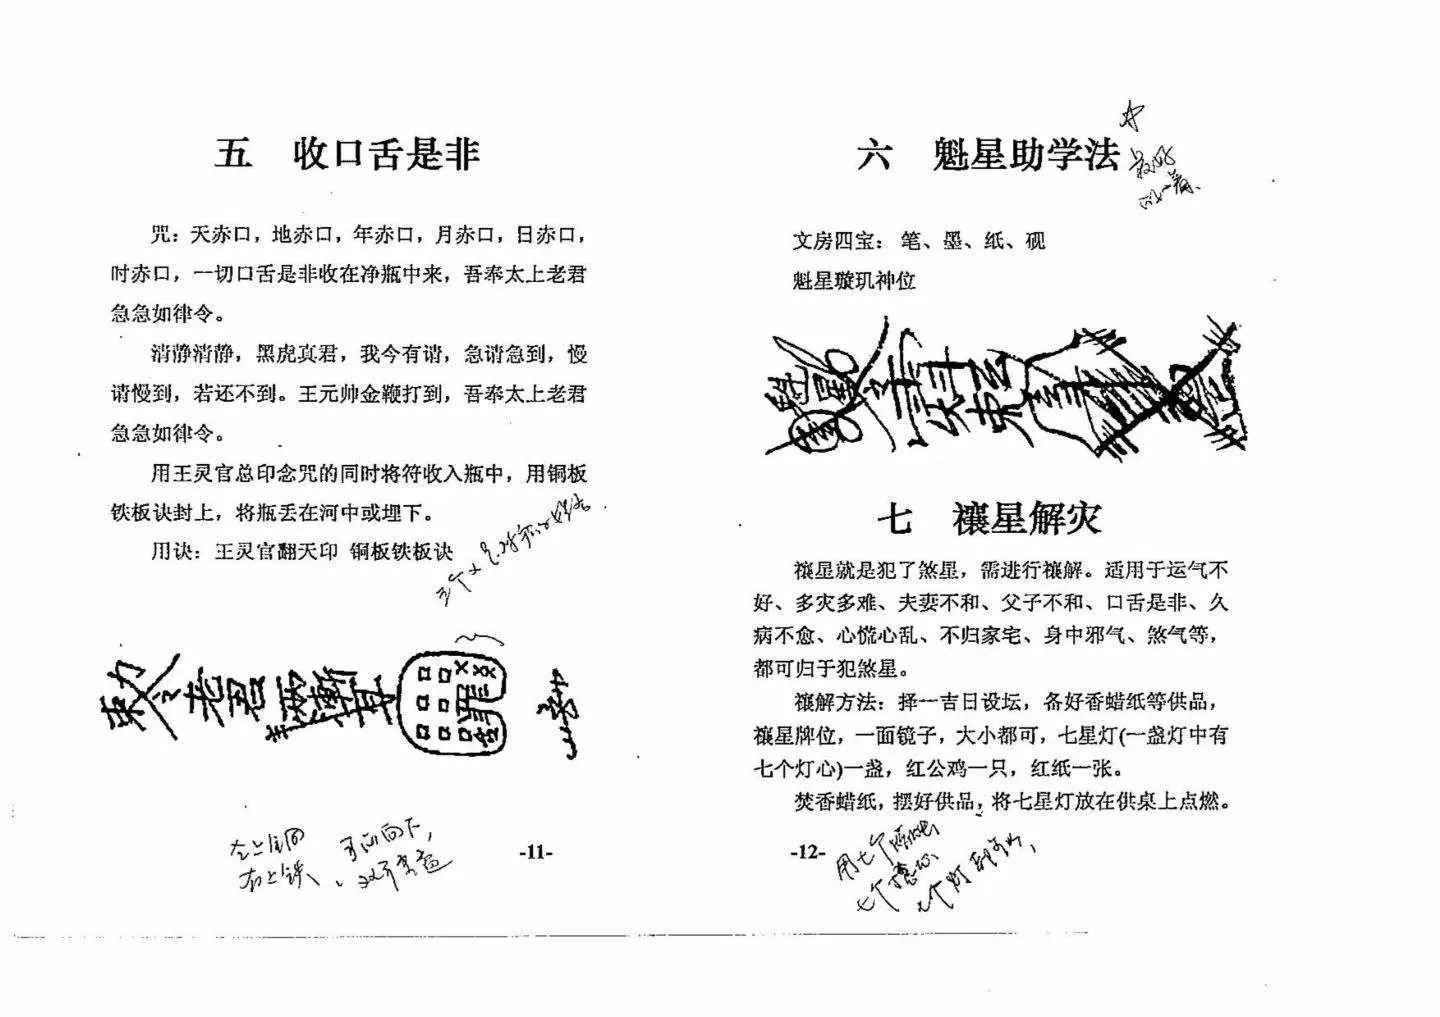 五 收口舌是非
咒：天赤口，地赤口，年赤口，月赤口，日赤口，
时赤口，一切口舌是非收在净瓶中来，吾奉太上老君
急急如律令。
消静消静，黑虎真君，我今有请，急请急到，慢
请慢到，若还不到。王元帅金鞭打到，吾奉太上老君
急急如律令。
用王灵官总印念咒的同时将符收入瓶中，用铜板
铁板诀封上，将瓶丢在河中或埋下。
用诀：王灵官翻天印 铜板铁板诀
老君
-11-
六 魁星助学法
文房四宝： 笔、墨、纸、砚
魁星璇玑神位
七 禳星解灾
禳星就是犯了煞星，需进行禳解。适用于运气不
好、多灾多难、夫妻不和、父子不和、口舌是非、久
病不愈、心慌心乱、不归家宅、身中邪气、煞气等，
都可归于犯煞星。
禳解方法：择一吉日设坛，备好香蜡纸等供品，
禳星牌位，一面镜子，大小都可，七星灯(一盏灯中有
七个灯心)一盏，红公鸡一只，红纸一张。
焚香蜡纸，摆好供品，将七星灯放在供桌上点燃。
-12-
用七个
七个